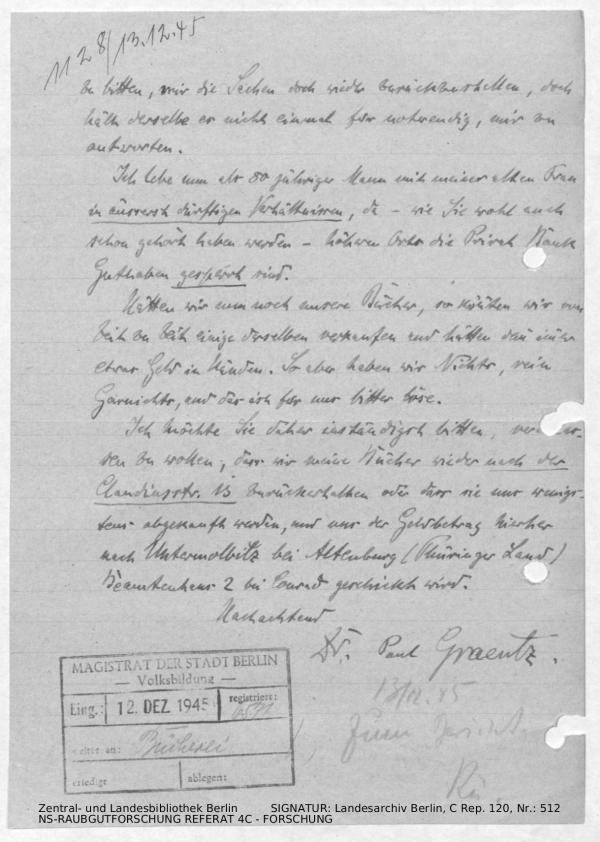 1128/13.12.45
zu bitten, mir die Sachen doch wieder zurückzustellen, doch
hält derselbe es nicht einmal für notwendig, mir zu
antworten.
Ich lebe nun als 80 jähriger Mann mit meiner alten Frau
in äusserst dürftigen Verhältnissen, da – wie Sie wohl auch
schon gehört haben werden – höheren Orts die Privat Bank
Guthaben gesperrt sind.
Hätten wir nun noch unsere Bücher, so könnten wir von
Zeit zu Zeit einige derselben verkaufen und hätten dann immer
etwas Geld in Händen. So aber haben wir Nichts, rein
Garnichts, und das ist für uns bitter böse.
Ich möchte Sie daher inständigst bitten,
sen zu wollen, dass wir meine Bücher wieder nach der
Claudiusstr. 15 zurückerhalten oder dass sie uns wenigs-
tens abgekauft werden, und uns der Geldbetrag hierher
nach Untermolbitz bei Altenburg (Thüringer Land)
Beamtenhaus 2 bei Conrad geschickt wird.
Hochachtend
Dr. Paul Graentz.
MAGISTRAT DER STADT BERLIN
— Volksbildung —
Eing.: 12. DEZ. 1945 registriert:
weiter an: Bücherei
erledigt ablegen:
13/12.45
Zum Bericht
Zentral- und Landesbibliothek Berlin SIGNATUR: Landesarchiv Berlin, C Rep. 120, Nr.: 512
NS-RAUBGUTFORSCHUNG REFERAT 4C - FORSCHUNG